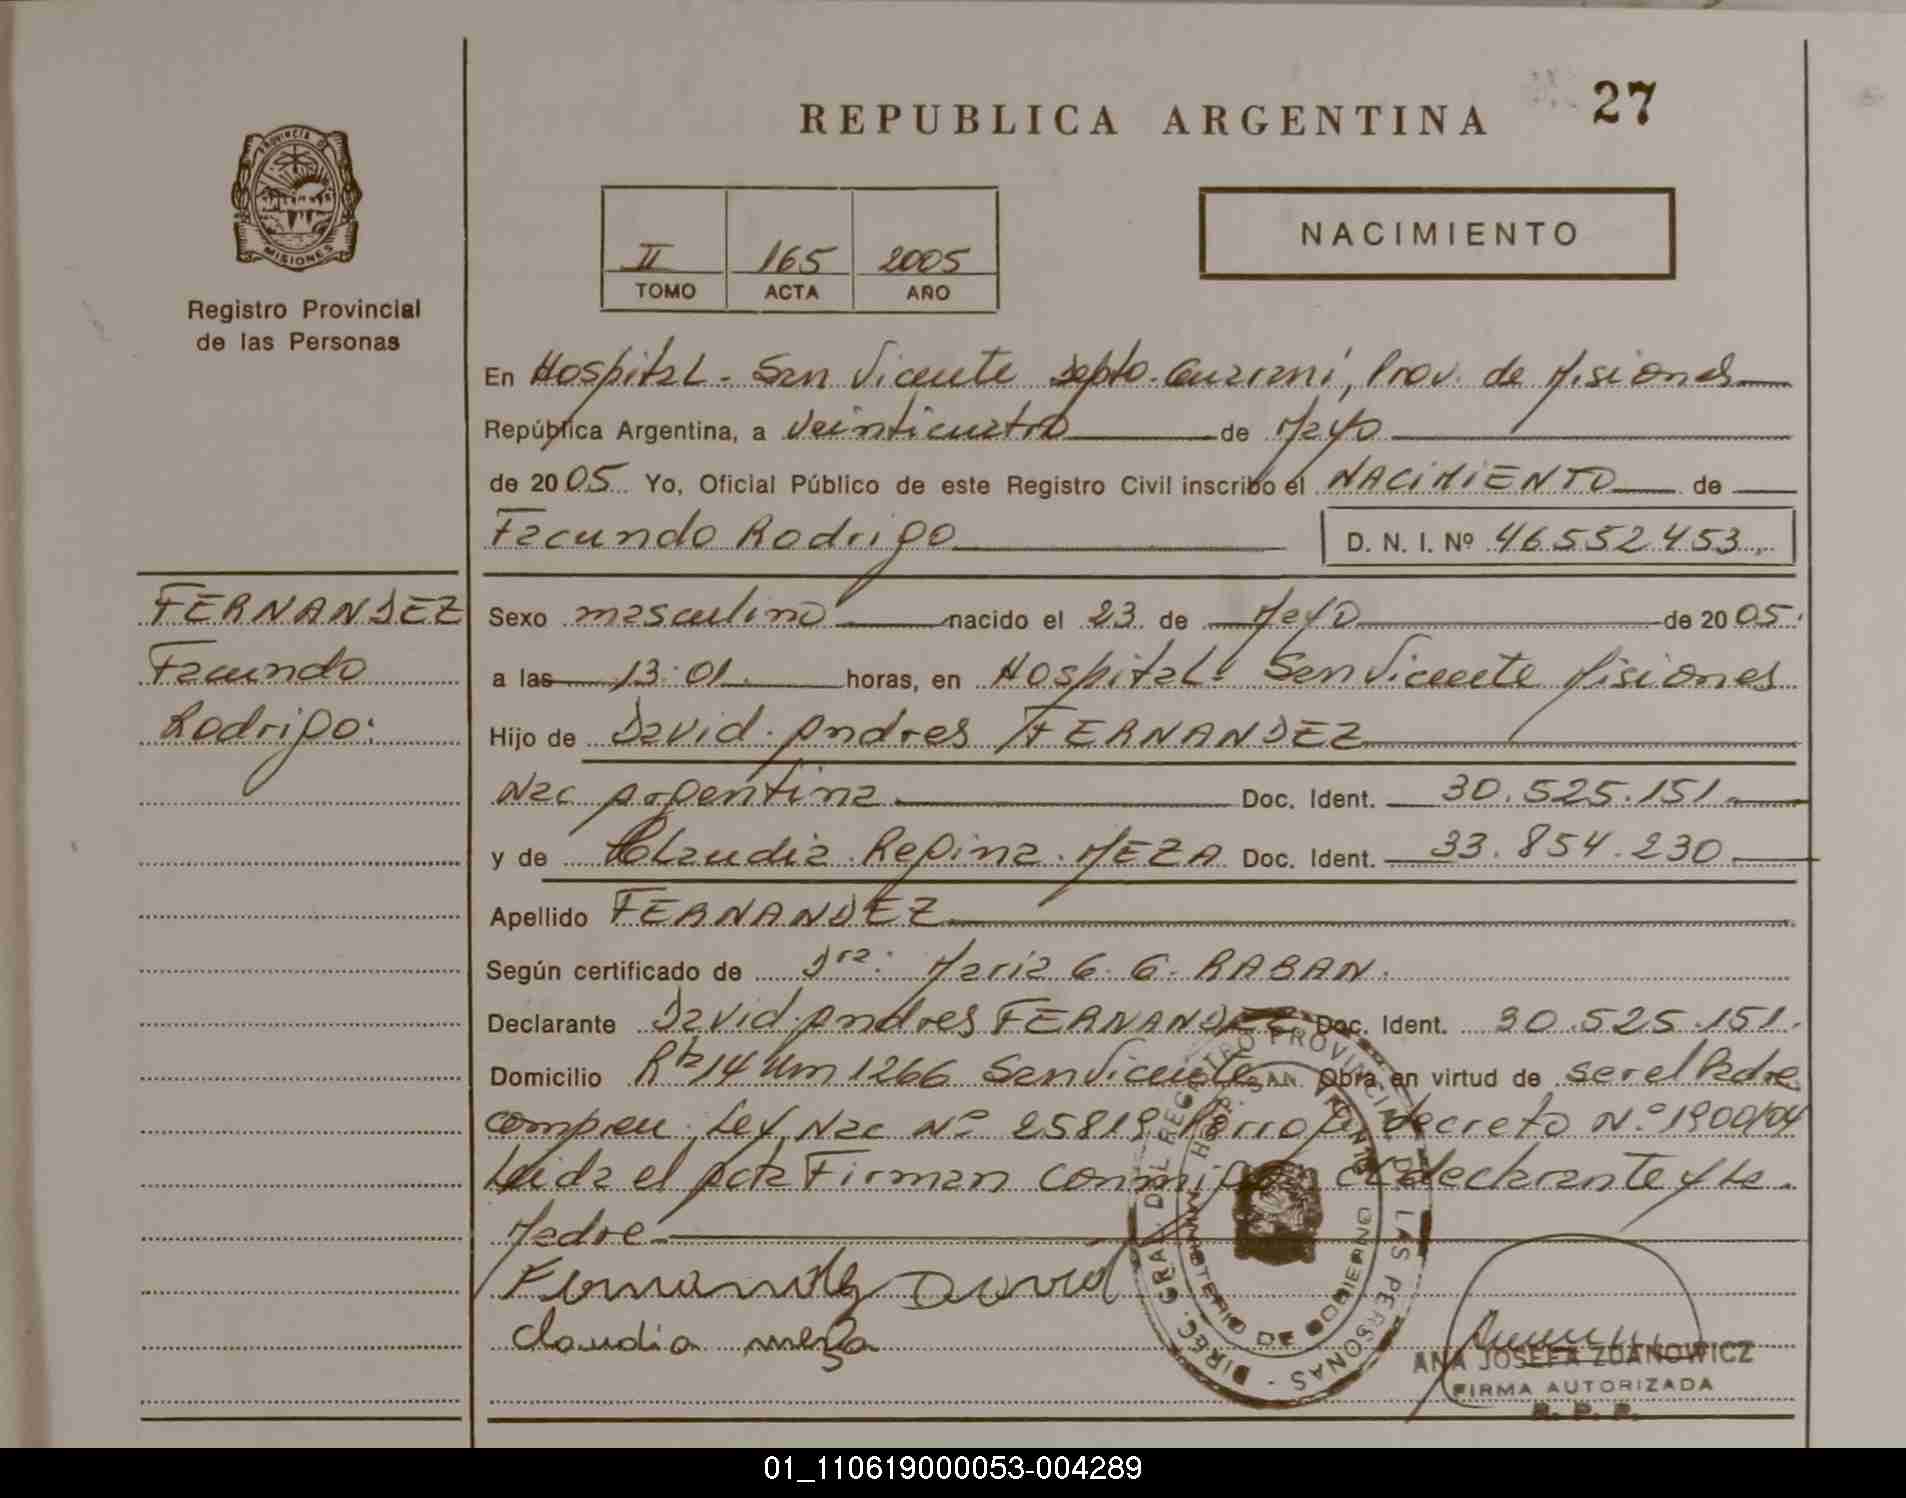 REPUBLICA ARGENTINA 27
PROVINCIA DE MISIONES
Registro Provincial
de las Personas
II 165 2005
TOMO ACTA AÑO
NACIMIENTO
En Hospital - San Vicente Depto. Guarani, Prov. de Misiones
República Argentina, a Veinticuatro de Mayo
de 2005 Yo, Oficial Público de este Registro Civil inscribo el NACIMIENTO de
Facundo Rodrigo D. N. I. Nº 46552453
FERNANDEZ
Facundo
Rodrigo:
Sexo masculino nacido el 23 de Mayo de 2005.
a las 13:01 horas, en Hospital - San Vicente Misiones
Hijo de David Andres FERNANDEZ
Nac Argentina Doc. Ident. 30.525.151
y de Claudia Regina MEZA Doc. Ident. 33.854.230
Apellido FERNANDEZ
Según certificado de Dra: Maria G. G. RABAN.
Declarante David Andres FERNANDEZ Doc. Ident. 30.525.151.
Domicilio Rta 14 Km 1266 San Vicente Obra en virtud de ser el Padre
Ley Nac Nº 25819 decreto Nº 1900/04
Leida el acta Firman conmigo el declarante y la
Madre
Fernandez David
Claudia meza
DIREC. GRAL. DEL REGISTRO PROVINCIAL DE LAS PERSONAS
HOSP. SAN VICENTE
MINISTERIO DE GOBIERNO
ANA JOSEFA ZDANOWICZ
FIRMA AUTORIZADA
R. P. P.
01_110619000053-004289